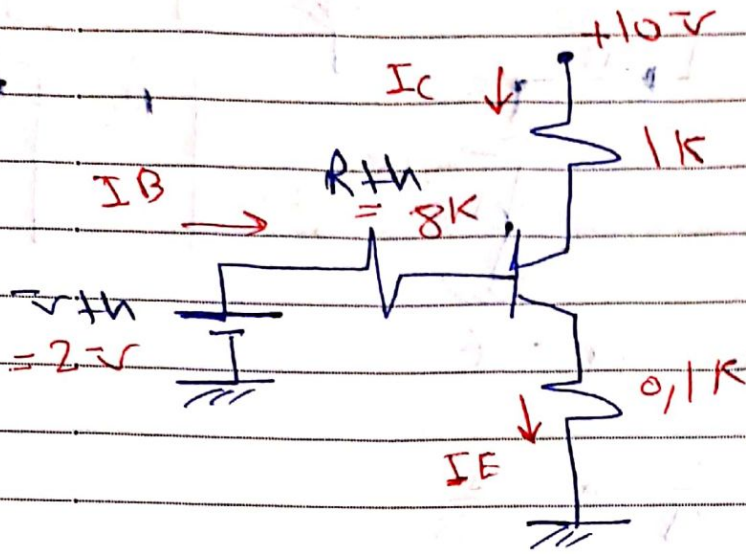 +10 v
IC
1K
Rth
= 8K
IB
vth
= 2 v
0,1K
IE